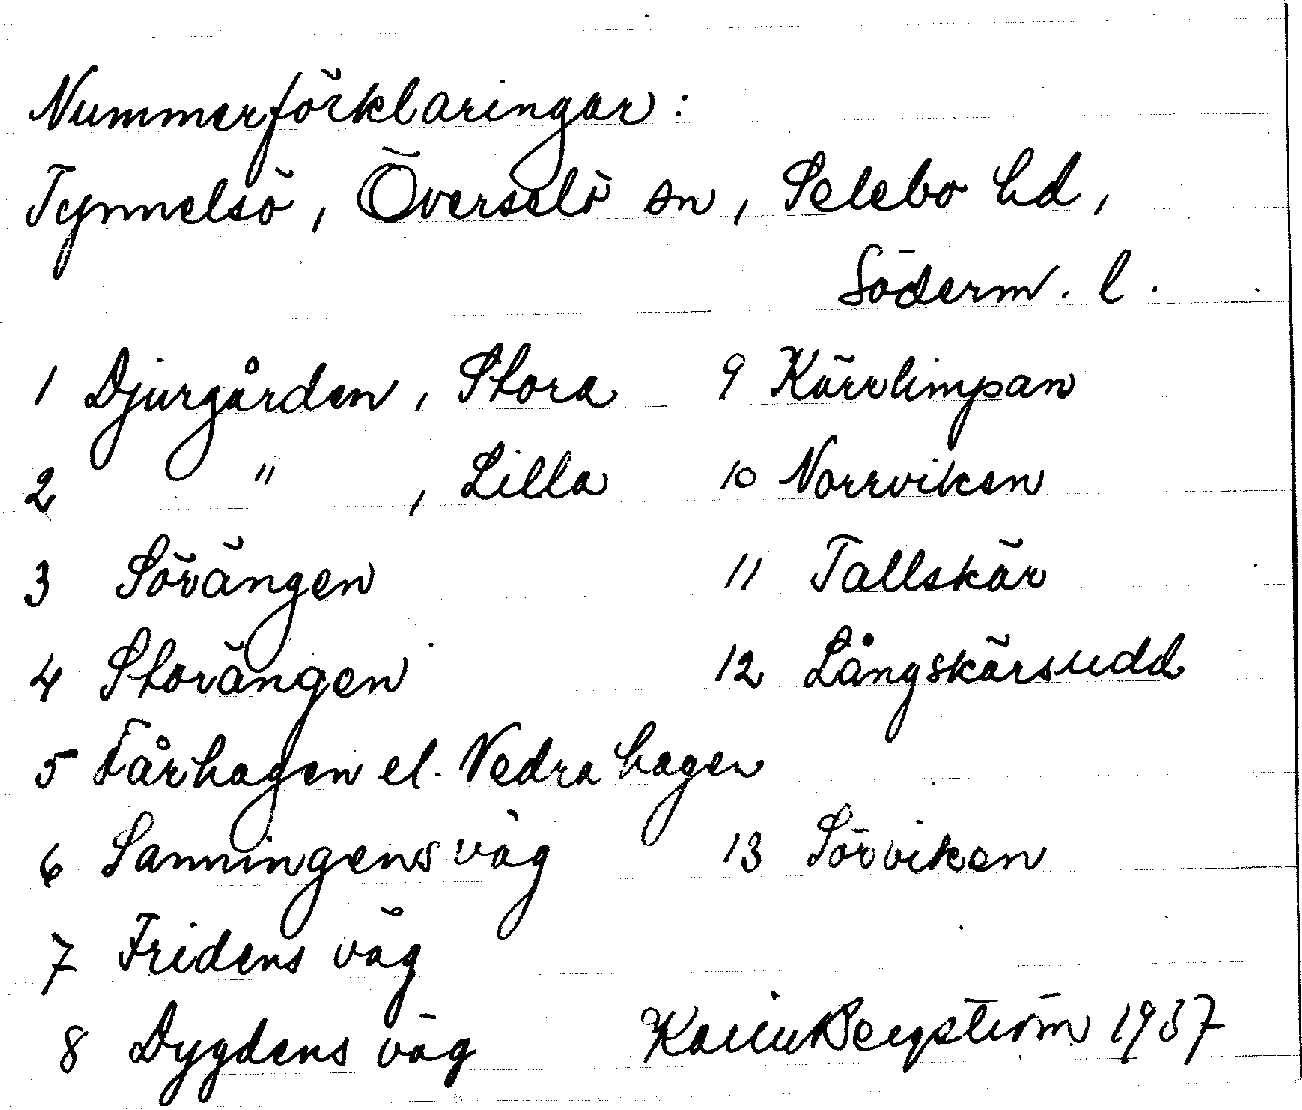 Nummerförklaringar:
Tynnelsö, Överselö sn, Selebo hd,
Söderm. l.
1 Djurgården, Stora
2 " , Lilla
3 Sörängen
4 Storängen
5 Fårhagen el. Vedra hagen
6 Sanningens väg
7 Fridens väg
8 Dygdens väg
9 Kärrlimpan
10 Norrviken
11 Tallskär
12 Långskärsudd
13 Sörviken
Karin Bergström 1937